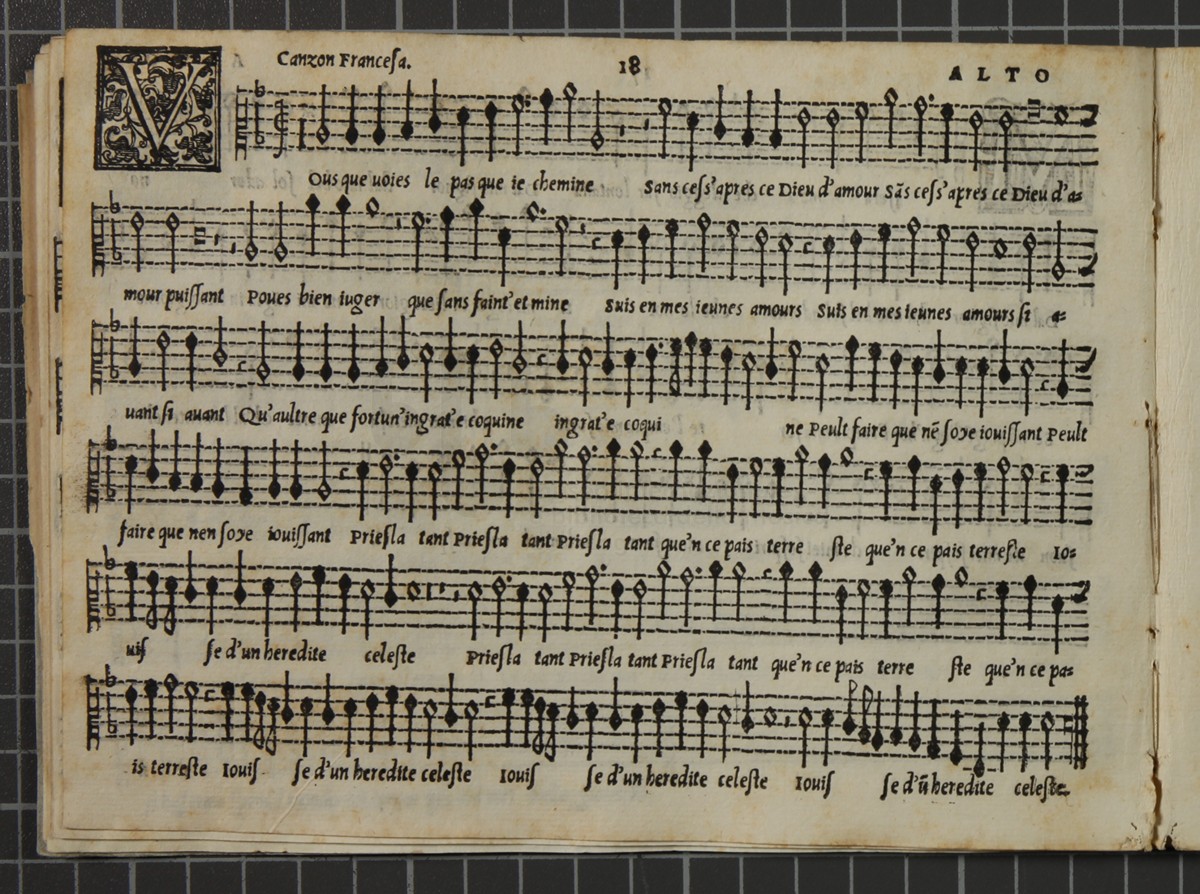 Canzon Francesa.
18
ALTO
VOus que uoies le pas que ie chemine Sans cess'apres ce Dieu d'amour Sãs cess'apres ce Dieu d'a=
mour puissant Poues bien iuger que sans faint'et mine Suis en mes ieunes amours Suis en mes ieunes amours si a=
uant si auant Qu'aultre que fortun'ingrat'e coquine ingrat'e coqui ne Peult faire que nẽ soye iouissant Peult
faire que nen soye iouissant Priesla tant Priesla tant Priesla tant que'n ce pais terre ste que'n ce pais terreste Io=
uis se d'un heredite celeste Priesla tant Priesla tant Priesla tant que'n ce pais terre ste que'n ce pa=
is terreste Iouis se d'un heredite celeste Iouis se d'un heredite celeste Iouis se d'ũ heredite celeste.